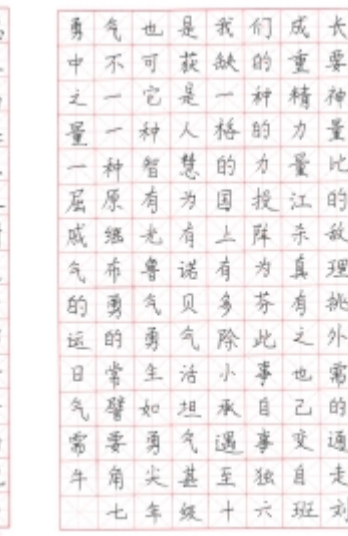 勇气也是我们成长
中不可获缺的重要
之一它是一种精神
量一种人格的力量
一种智慧的力量比
屈原有为国投江的
戚继光有上阵杀敌
气布鲁诺有为真理
的勇气贝多芬有挑
运的勇气除此之外
日常生活小事也需
气譬如坦承自己的
需要勇气遇事变通
牛角尖甚至独自走
七年级十六班刘